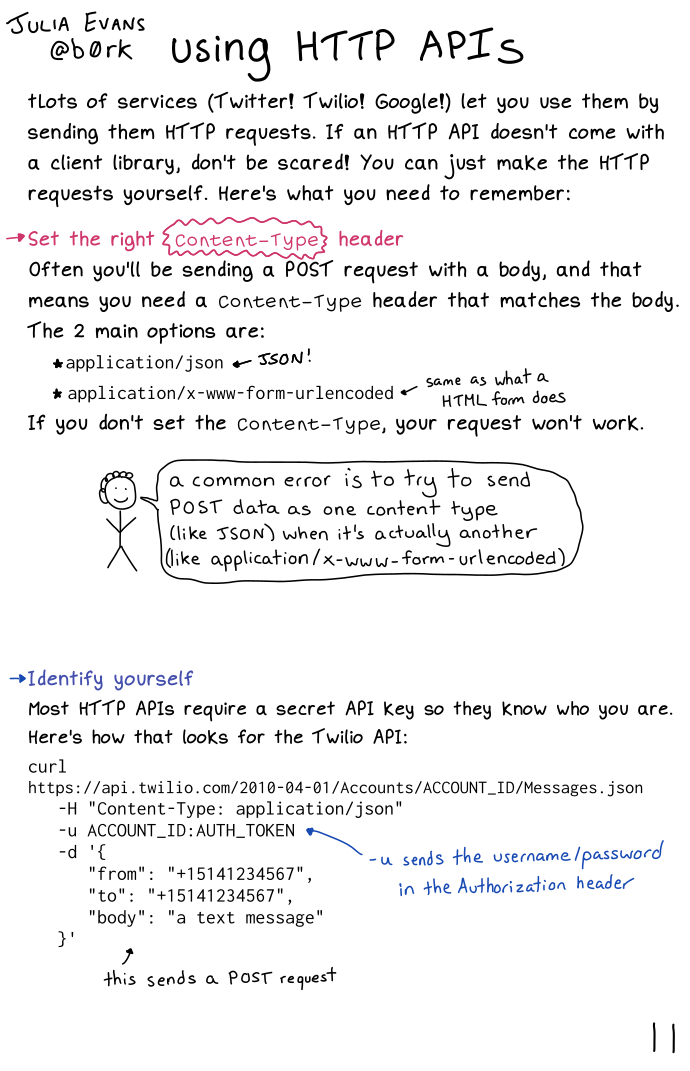 JULIA EVANS
@b0rk
using HTTP APIs
tLots of services (Twitter! Twilio! Google!) let you use them by
sending them HTTP requests. If an HTTP API doesn't come with
a client library, don't be scared! You can just make the HTTP
requests yourself. Here's what you need to remember:
→Set the right Content-Type header
Often you'll be sending a POST request with a body, and that
means you need a Content-Type header that matches the body.
The 2 main options are:
★application/json ← JSON!
★ application/x-www-form-urlencoded ← same as what a
HTML form does
If you don't set the Content-Type, your request won't work.
a common error is to try to send
POST data as one content type
(like JSON) when it's actually another
(like application/x-www-form-urlencoded)
→Identify yourself
Most HTTP APIs require a secret API key so they know who you are.
Here's how that looks for the Twilio API:
curl
https://api.twilio.com/2010-04-01/Accounts/ACCOUNT_ID/Messages.json
-H "Content-Type: application/json"
-u ACCOUNT_ID:AUTH_TOKEN
-u sends the username/password
in the Authorization header
-d '{
"from": "+15141234567",
"to": "+15141234567",
"body": "a text message"
}'
this sends a POST request
11